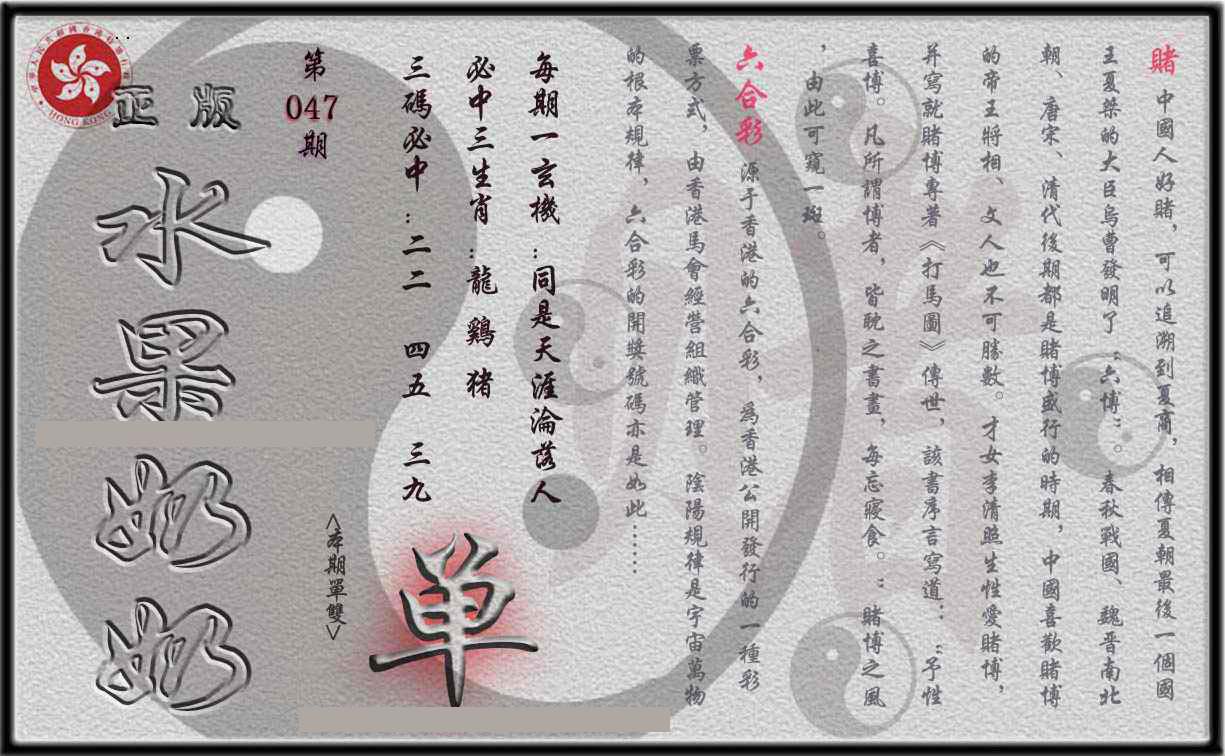 賭 中國人好賭，可以追溯到夏商，相傳夏朝最後一個國
王夏桀的大臣烏曹發明了“六博”。春秋戰國、魏晋南北
朝、唐宋、清代後期都是賭博盛行的時期，中國喜歡賭博
的帝王將相、文人也不可勝數。才女李清照生性愛賭博，
并寫就賭博專著《打馬圖》傳世，該書序言寫道：“予性
喜博。凡所謂博者，皆耽之書畫，每忘寢食。：賭博之風
，由此可窺一斑。
六合彩 源于香港的六合彩，爲香港公開發行的一種彩
票方式，由香港馬會經營組織管理。陰陽規律是宇宙萬物
的根本規律，六合彩的開獎號碼亦是如此……
每期一玄機：同是天涯淪落人
必中三生肖：龍 鷄 猪
三碼必中：二二 四五 三九
第047期
<本期單雙>
单
正版
水果奶奶
HONG KONG